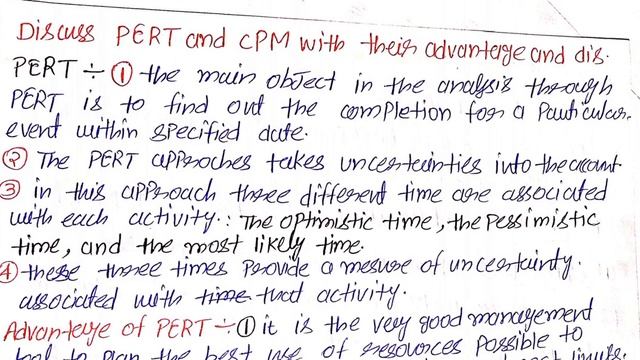 Discuss PERT and CPM with their advantage and dis.
PERT ÷ ① the main object in the analysis through
PERT is to find out the completion for a Particular
event within specified date.
② The PERT approches takes uncertainties into the account
③ in this approach three different time are associated
with each activity.: The optimistic time, the pessimistic
time, and the most likely time.
④ these three times Provide a mesure of uncertainty.
associated with time that activity.
Advantage of PERT ÷ ① it is the very good management
tool to plan the best use of resources possible to